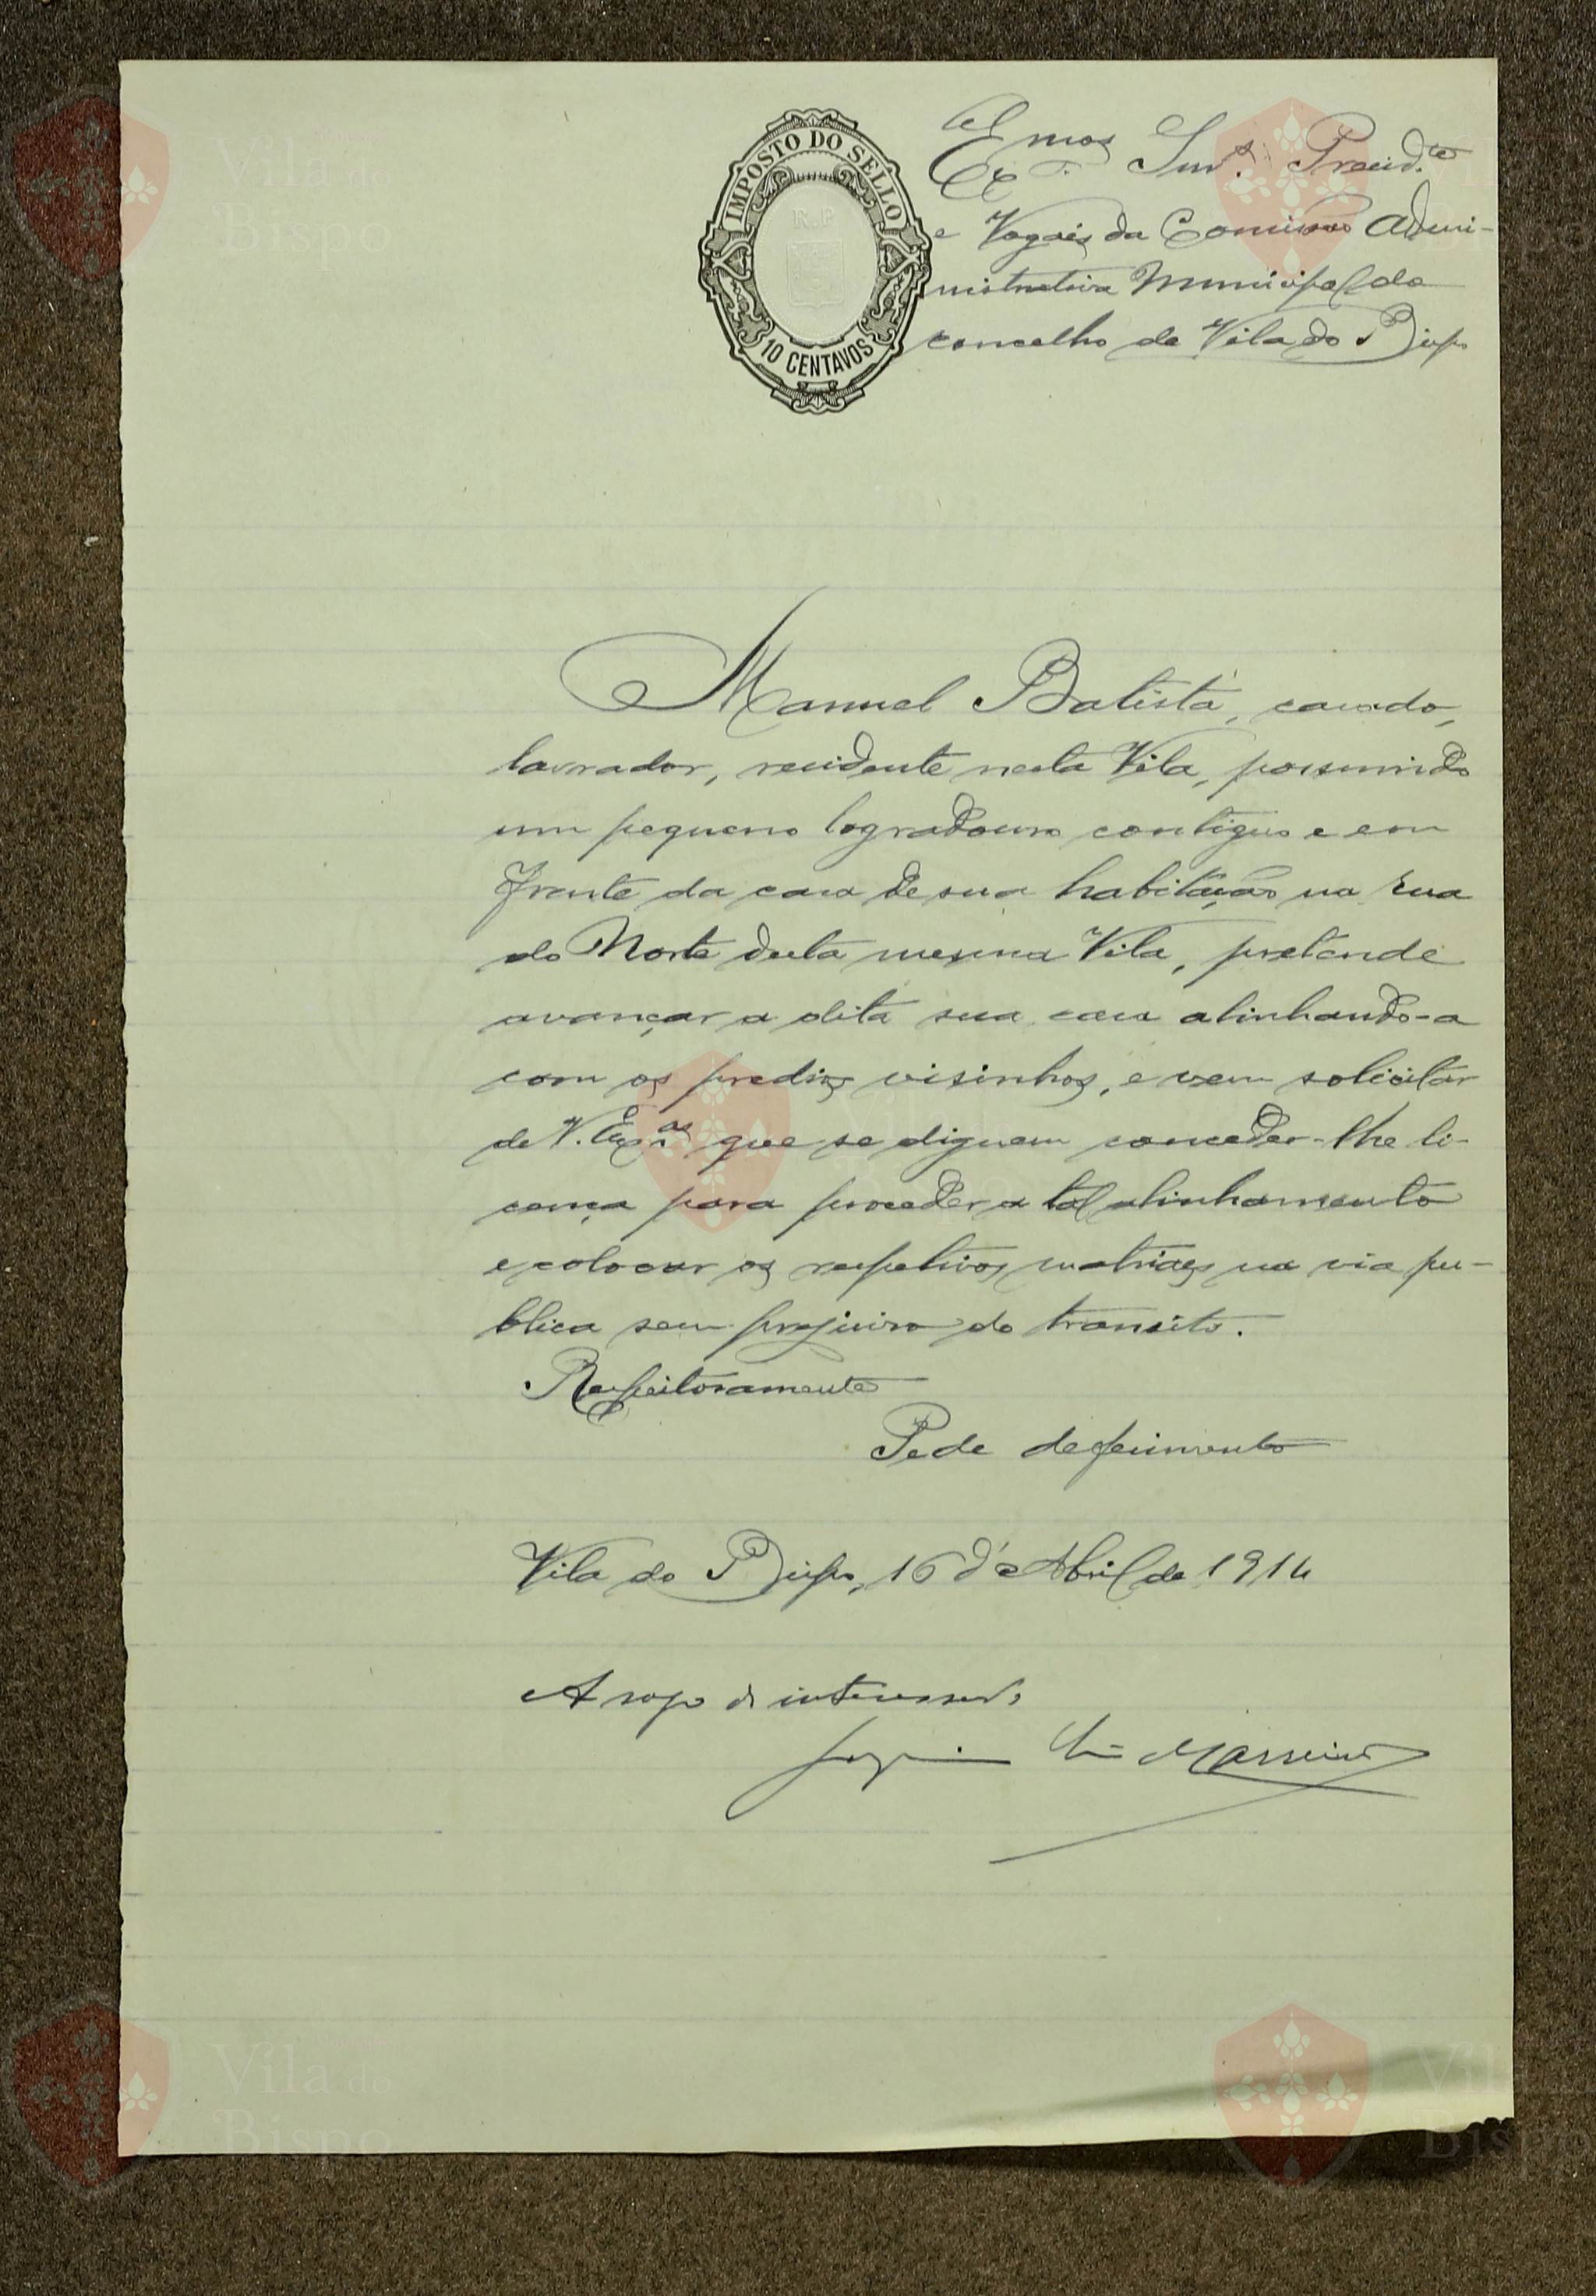 IMPOSTO DO SELLO
R P
10 CENTAVOS
Ex.mos Snrs. Presid.te
e Vogais da Comissão Admi-
nistrativa Municipal do
concelho de Vila do Bispo
Manuel Batista, casado,
lavrador, residente nesta Vila, possuindo
um pequeno logradouro contiguo e em
frente da casa de sua habitação na rua
do Norte desta mesma Vila, pretende
avançar a dita sua casa alinhando-a
com os predios visinhos, e vem solicitar
de V. Ex.as que se dignem conceder-lhe li-
cença para proceder a tal alinhamento
e colocar os respetivos matriaes na via pu-
blica sem prejuizo do transito.
Respeitosamente
Pede deferimento
Vila do Bispo, 16 d'Abril de 1914
A rogo do interessado
Vila do
Bispo